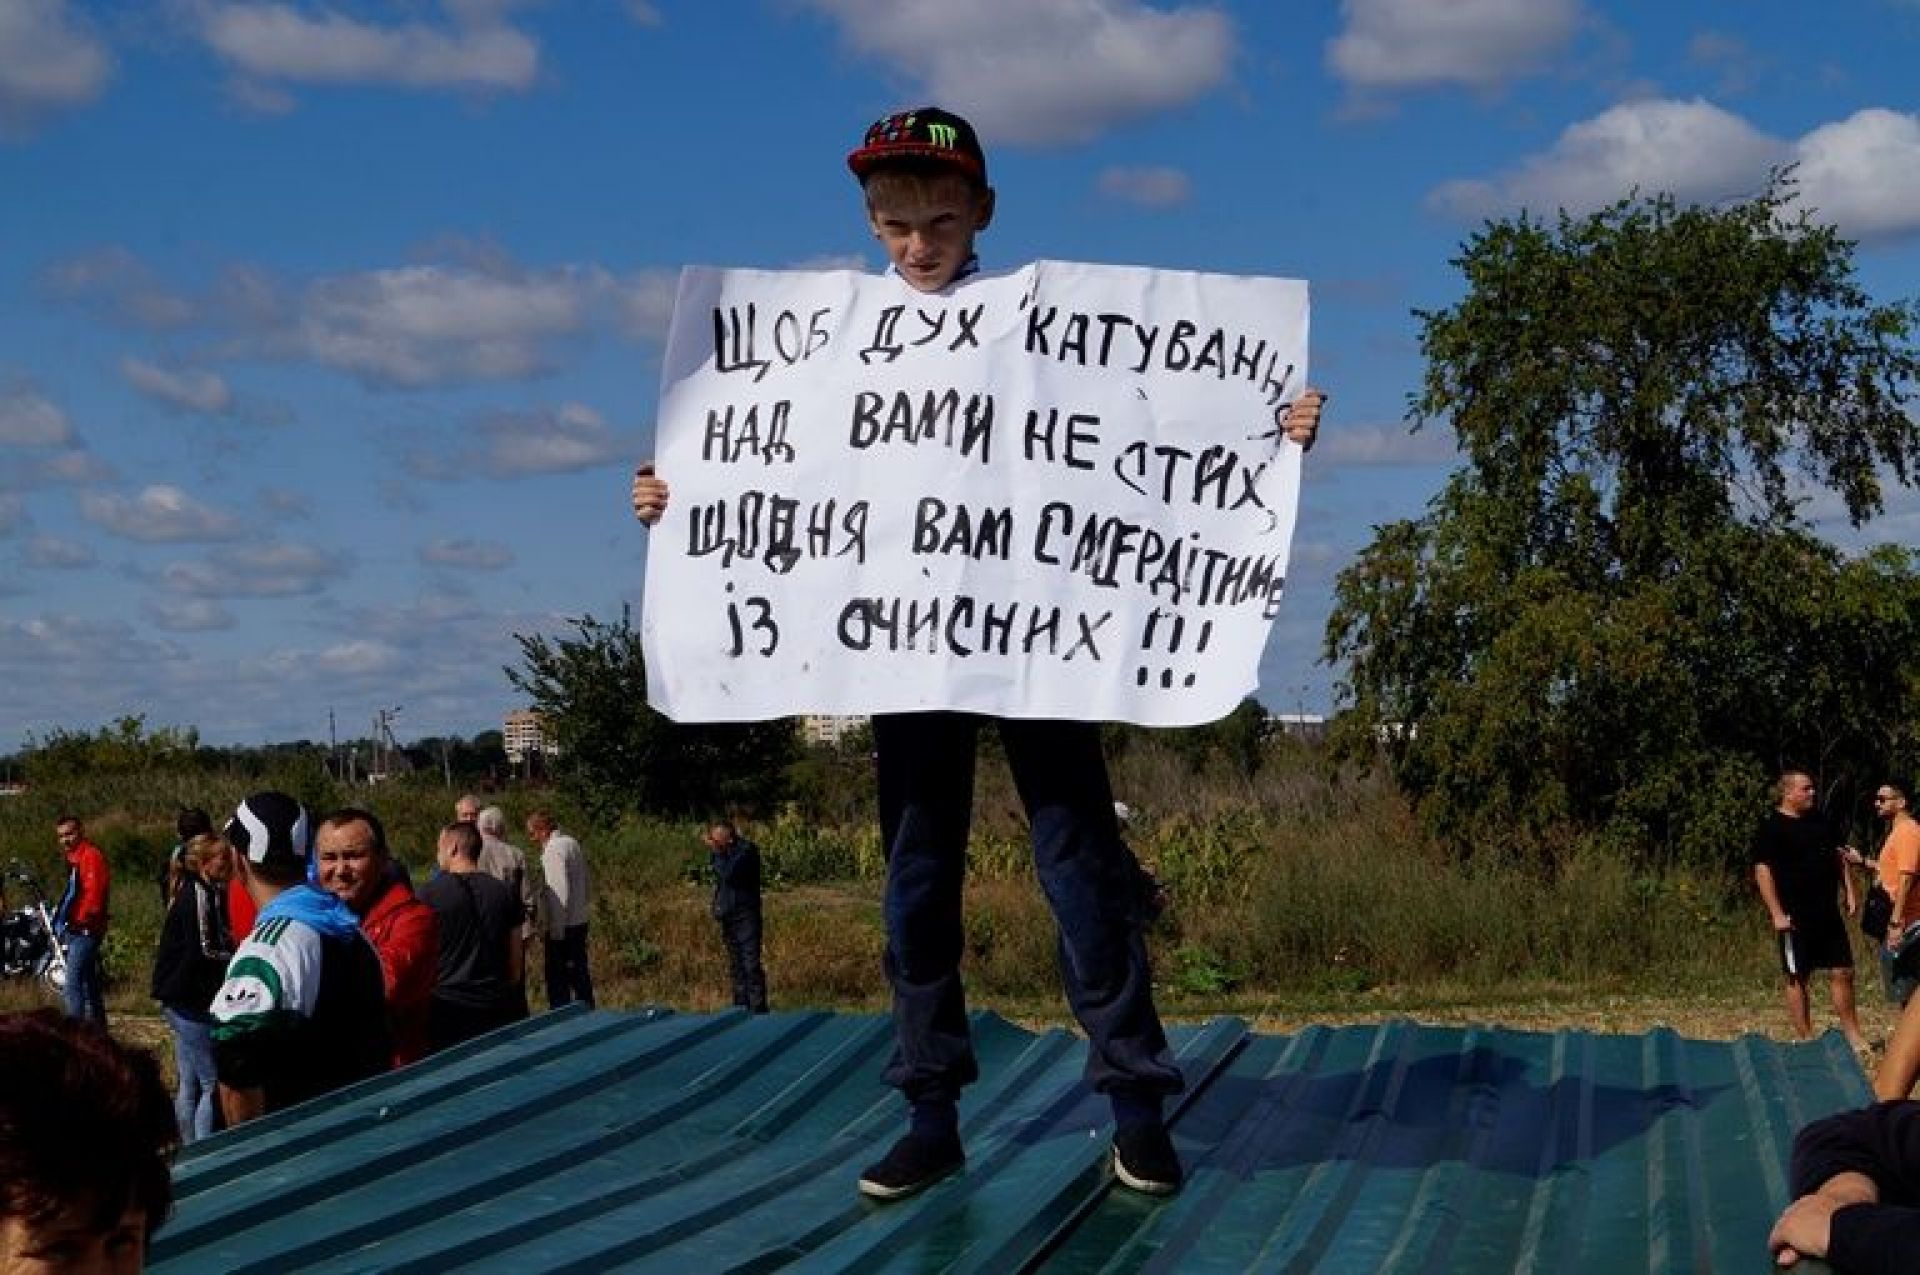 ЩОБ ДУХ КАТУВАННЯ
НАД ВАМИ НЕ СТИХ,
ЩОДНЯ ВАМ СМЕРДІТИМЕ
ІЗ ОЧИСНИХ !!!